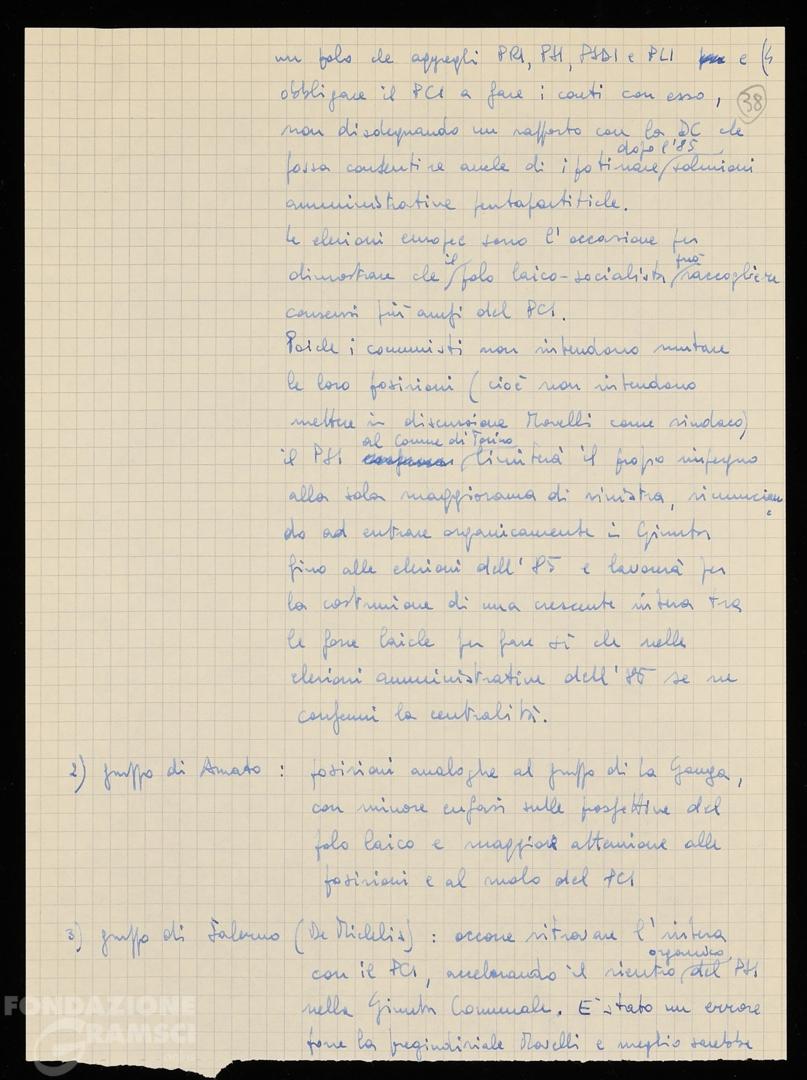 un polo che aggreghi PRI, PSI, PSDI e PLI e (4
obbligare il PCI a fare i conti con esso, 38
non disdegnando un rapporto con la DC che
dopo l'85
possa consentire anche di ipotizzare soluzioni
amministrative pentapartitiche.
Le elezioni europee sono l'occasione per
il può
dimostrare che polo laico-socialista raccogliere
consensi più ampi del PCI.
Poiche i comunisti non intendono mutare
le loro posizioni (cioè non intendono
mettere in discussione Novelli come sindaco)
al Comune di Torino
il PSI limiterà il proprio impegno
alla sola maggioranza di sinistra, rinuncian
do ad entrare organicamente in Giunta
fino alle elezioni dell'85 e lavorerà per
la costruzione di una crescente intesa tra
le forze laiche per fare sì che nelle
elezioni amministrative dell'85 se ne
confermi la centralità.
2) gruppo di Amato : posizioni analoghe al gruppo di La Ganga,
con minore enfasi sulle prospettive del
polo laico e maggiore attenzione alle
posizioni e al ruolo del PCI
3) gruppo di Salerno (De Michelis) : occorre ritrovare l'intesa
organico
con il PCI, accelerando il rientro del PSI
nella Giunta Comunale. E' stato un errore
porre la pregiudiziale Novelli e meglio sarebbe
FONDAZIONE
GRAMSCI